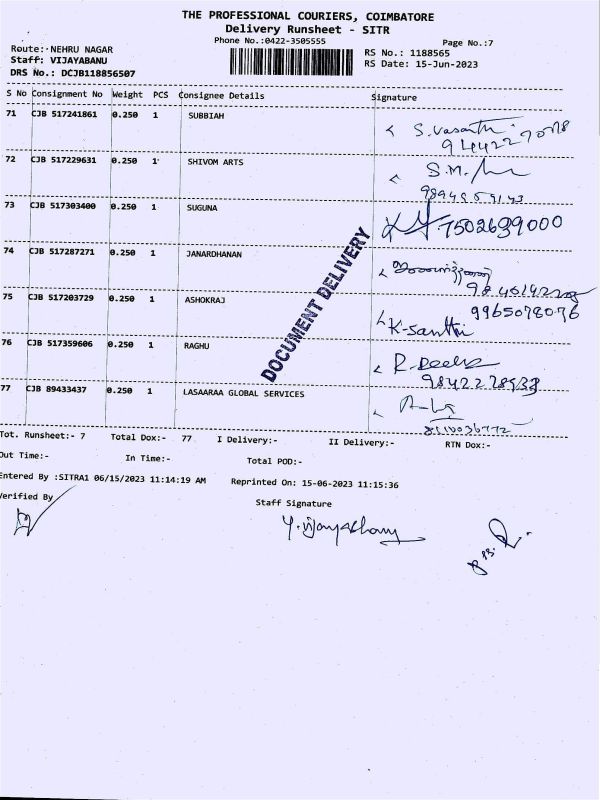 THE PROFESSIONAL COURIERS, COIMBATORE
Delivery Runsheet - SITR
Phone No.:0422-3505555
Page No.:7
Route:-NEHRU NAGAR
RS No.: 1188565
Staff: VIJAYABANU
RS Date: 15-Jun-2023
DRS No.: DCJB118856507
S No Consignment No Weight PCS Consignee Details Signature
71 CJB 517241861 0.250 1 SUBBIAH S.Vasanthi
72 CJB 517229631 0.250 1 SHIVOM ARTS S.M.
73 CJB 517303400 0.250 1 SUGUNA 7502639000
74 CJB 517287271 0.250 1 JANARDHANAN
75 CJB 517203729 0.250 1 ASHOKRAJ 9965078076
K-Santhi
76 CJB 517359606 0.250 1 RAGHU
77 CJB 89433437 0.250 1 LASAARAA GLOBAL SERVICES
DOCUMENT DELIVERY
Tot. Runsheet:- 7 Total Dox:- 77 I Delivery:- II Delivery:- RTN Dox:-
Out Time:- In Time:- Total POD:-
Entered By :SITRA1 06/15/2023 11:14:19 AM Reprinted On: 15-06-2023 11:15:36
Verified By
Staff Signature